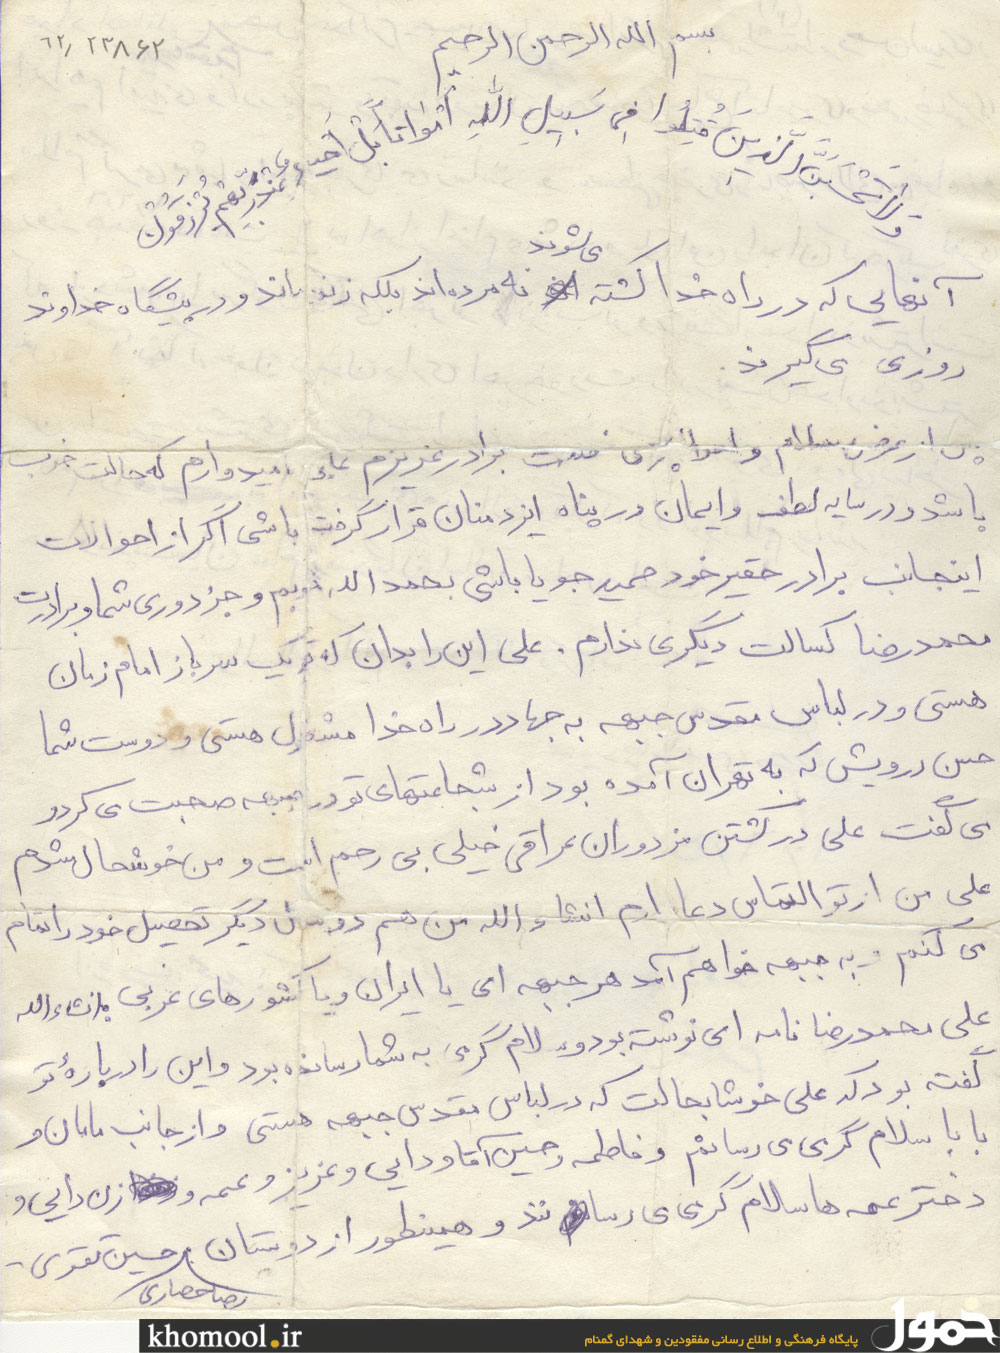 بسم الله الرحمن الرحیم
۶۲/ ۲۳۸۶۲
وَلا تَحْسَبَنَّ الَّذینَ قُتِلُوا فِی سَبیلِ اللهِ اَمْواتاً بَلْ اَحیاءٌ عِنْدَ رَبِّهِمْ یُرْزَقُونَ
می شوند
آنهایی که در راه خدا کشته نه مرده اند بلکه زنده اند و در پیشگاه خداوند
روزی می گیرند.
پس از عرض سلام و احوالپرسی خدمت برادر عزیزم علی امیدوارم که حالت خوب
باشد و در سایه لطف و ایمان در پناه ایزد منان قرار گرفته باشی اگر از احوالات
اینجانب برادر حقیر خود حمید جویا باشی بحمدالله خوبم و جز دوری شما و برادرت
محمدرضا کسالت دیگری ندارم. علی این را بدان که تو یک سرباز امام زمان
هستی و در لباس مقدس جبهه به جهاد در راه خدا مشغول هستی و دوست شما
حسن درویش که به تهران آمده بود از شجاعتهای تو در جبهه صحبت می کرد و
می گفت علی در کشتن مزدوران عراقی خیلی بی رحم است و من خوشحال شدم
علی من از تو التماس دعا دارم انشاءالله من هم دو سال دیگر تحصیل خود را تمام
می کنم و به جبهه خواهم آمد هر جبهه ای یا ایران و یا کشورهای غربی انشاءالله
علی محمدرضا نامه ای نوشته بود و سلام گرمی به شما رسانده بود و این را درباره تو
گفته بود که علی خوشا بحالت که در لباس مقدس جبهه هستی و از جانب مامان و
بابا سلام گرمی می رسانم و فاطمه و حسین آقا و دایی و عزیز و عمه و زن دایی و
دختر عمه ها سلام گرمی می رسانند و همینطور از دوستان حسین تقوی -
رضا حصاری
khomool.ir
پایگاه فرهنگی و اطلاع رسانی مفقودین و شهدای گمنام
خمول